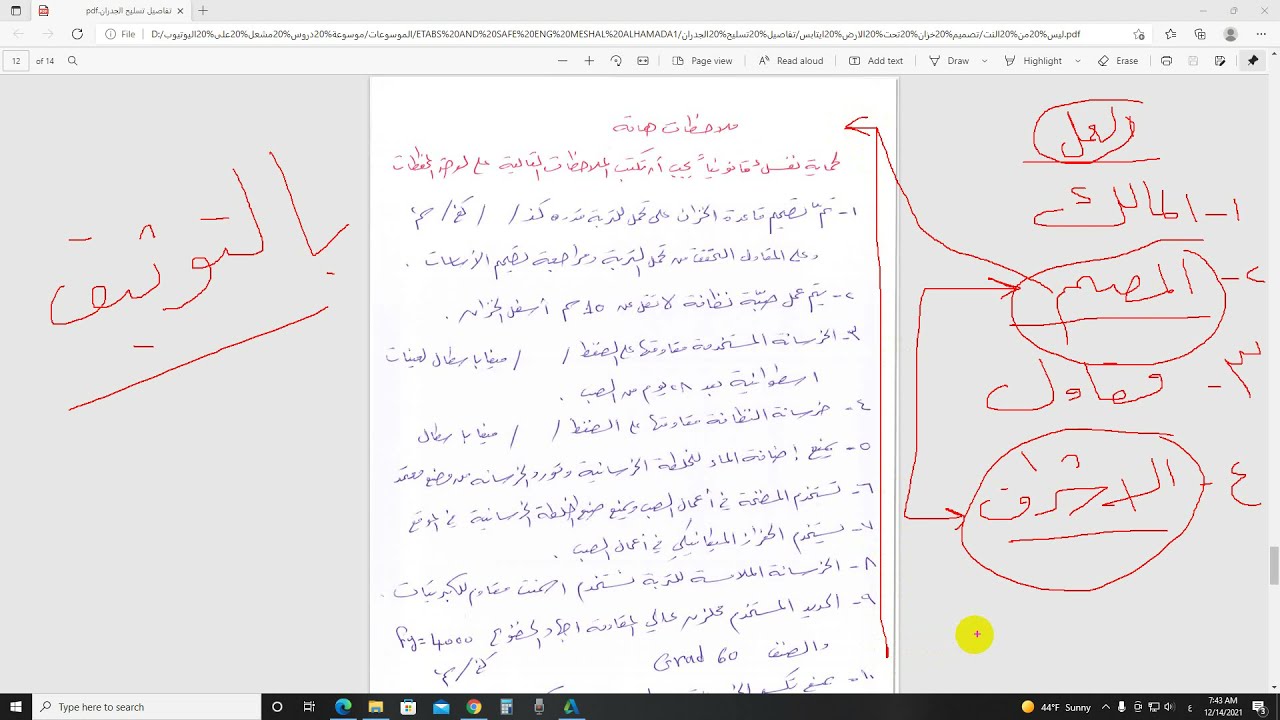 تفاصيل تسليح الجدران.pdf
File
D:/الموسوعات/موسوعة%20دروس%20مشعل%20على%20اليوتيوب/ETABS%20AND%20SAFE%20ENG%20MESHAL%20ALHAMADA1/تفاصيل%20تسليح%20الجدران/تصميم%20خزان%20تحت%20الارض%20ايتابس/ليس%20من%20النت.pdf
12 of 14
Page view
Read aloud
Add text
Draw
Highlight
Erase
ملاحظات هامة
لحماية نفسك قانونياً يجب أن تكتب الملاحظات التالية على لوحة المخططات
١- تم تصميم قاعدة الخزان على تحمل للتربة قدره كذا / / كغ/سم٢
وعلى المقاول التحقق من تحمل التربة ومراجعة تصميم الأساسات .
٢- يتم عمل صبّة نظافة لا تقل عن 10 سم أسفل الخزان .
٣- الخرسانة المستخدمة مقاومتها على الضغط / / ميغا باسكال لعينات
اسطوانية بعد ٢٨ يوم من الصب .
٤- خرسانة النظافة مقاومتها على الضغط / / ميغا باسكال
٥- يمنع إضافة الماء للخلطة الخرسانية وتورد الخرسانة من مصنع معتمد
٦- تستخدم المضخة في أعمال الصب ويمنع صنع الخلطة الخرسانية في الموقع
٧- يستخدم الهزاز الميكانيكي في أعمال الصب .
٨- الخرسانة الملامسة للتربة نستخدم اسمنت مقاوم للكبريتات .
٩- الحديد المستخدم محلزن عالي المقاومة اجهاد الخضوع fy=4000
والصنف Grad 60 كغ/سم٢
١٠- يمنع
العمل
١- المالك
٢- المصمم
٣- مقاول
٤- الاشراف
بالتوثيق
Type here to search
44°F Sunny
ع
7:43 AM
12/14/2021